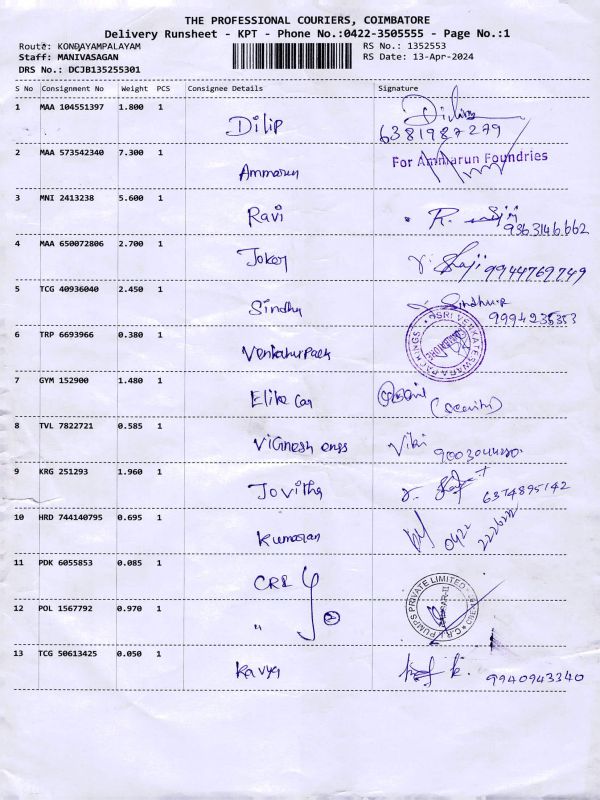 THE PROFESSIONAL COURIERS, COIMBATORE
Delivery Runsheet - KPT - Phone No.:0422-3505555 - Page No.:1
Route: KONDAYAMPALAYAM RS No.: 1352553
Staff: MANIVASAGAN RS Date: 13-Apr-2024
DRS No.: DCJB135255301
S No Consignment No Weight PCS Consignee Details Signature
1 MAA 104551397 1.800 1 Dilip 6381987279
2 MAA 573542340 7.300 1 Ammarun For Ammarun Foundries
3 MNI 2413238 5.600 1 Ravi R. 9363146662
4 MAA 650072806 2.700 1 Joker 9944769749
5 TCG 40936040 2.450 1 Sindhu 9994235353
6 TRP 6693966 0.380 1 Venkahurpack SRI VENKATESWARA PACKINGS
7 GYM 152900 1.480 1 Elike Car
8 TVL 7822721 0.585 1 ViGnesh engs Viki
9 KRG 251293 1.960 1 Jovitha 6374895142
10 HRD 744140795 0.695 1 Kumaran 0422
11 PDK 6055853 0.085 1 CRI
12 POL 1567792 0.970 1 " 2 C.R.I. PUMPS PRIVATE LIMITED
13 TCG 50613425 0.050 1 Kavya k. 9940943340